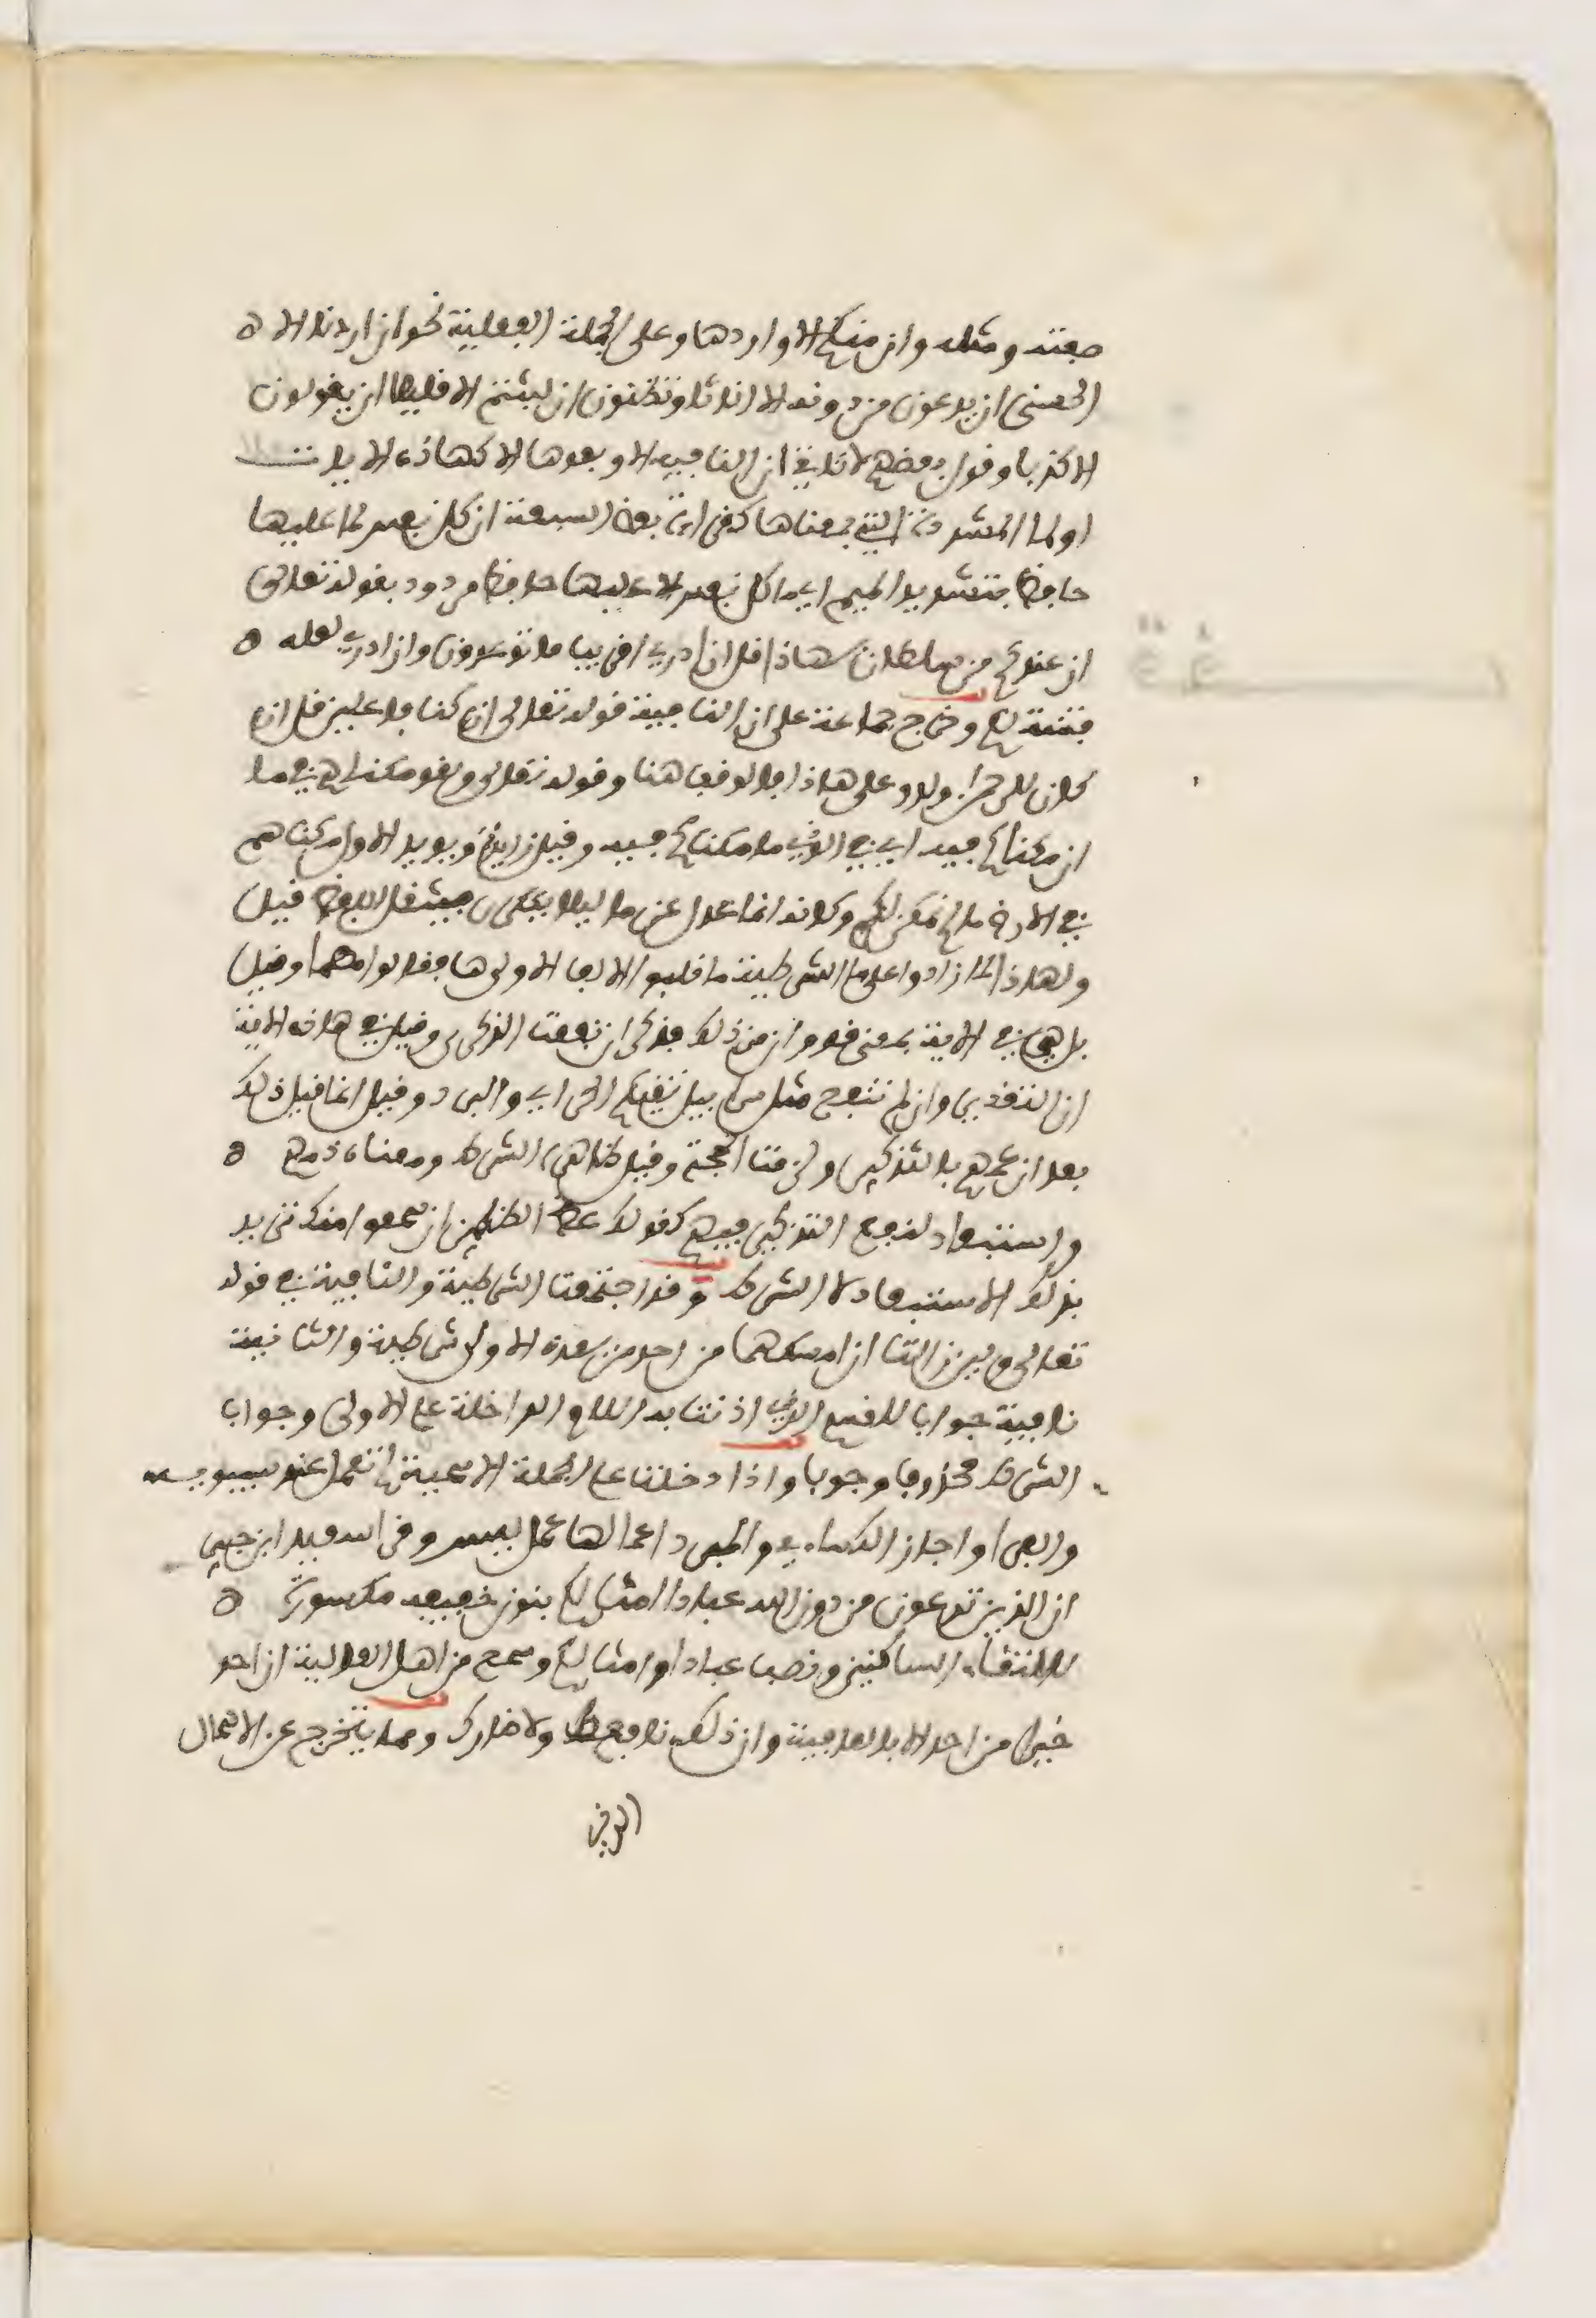 صفته ومثله وان منكم الا واردها وعلى الجملة الفعلية نحو ان اردنا الا
الحسنى ان يدعون من دونه الا اناثا وتظنون ان لبثتم الا قليلا ان يقولون
الا كذبا وقول بعضهم لا تاتي ان النافية الا وبعدها الا كهاذه الايات
او لما المشددة التي بمعناها كقراءة بعض السبعة ان كل نفس لما عليها
حافظ بتشديد الميم اي ما كل نفس الا عليها حافظ مردود بقوله تعالى
ان عندكم من سلطان بهاذا قل ان ادري اقريب ما توعدون وان ادري لعله
فتنة لكم وخرج جماعة على ان النافية قوله تعالى ان كنا فاعلين قل ان
كان للرحمن ولد وعلى هاذا فالوقف هنا وقوله تعالى ولقد مكناهم في ما
ان مكناكم فيه اي في الذي ما مكناكم فيه وقيل زايدة ويويد الاول مكناهم
في الارض ما لم نمكن لكم وكانه انما عدل عن ما ليلا يتكرر فيثقل اللفظ قيل
ولهاذا لما زادوا على ما الشرطية ما قلبوا الالف الاولى ها فقالوا مهما وقيل
بل هي في الاية بمعنى قد وان من ذلك فذكر ان نفعت الذكرى وقيل في هاذه الاية
ان التقدير وان لم تنفع مثل سرابيل تقيكم الحر اي والبرد وقيل انما قيل ذلك
بعد ان عمهم بالتذكير ولزمت الحجة وقيل ظاهره الشرط ومعناه ذمهم
واستبعاد لنفع التذكير فيهم كقولك عظ الظالمين ان سمعوا منك تريد
بذلك الاستبعاد لا الشرط وقد اجتمعت الشرطية والنافية في قوله
تعالى ولين زالتا ان امسكهما من احد من بعده الاولى شرطية والثانية
نافية جواب للقسم الذي اذنت به اللام الداخلة على الاولى وجواب
الشرط محذوف وجوبا واذا دخلت على الجملة الاسمية لم تعمل عند سيبويه
والفرا واجاز الكساءي والمبرد اعمالها عمل ليس وقرا سعيد ابن جبير
ان الذين تدعون من دون الله عبادا امثالكم بنون خفيفه مكسورة
لالتقاء الساكنين ونصب عبادا وامثالكم وسمع من اهل العالية ان احد
خيرا من احد الا بالعافية وان ذلك نافعك ولا ضارك ومما يتخرج عن الاهمال
الذي